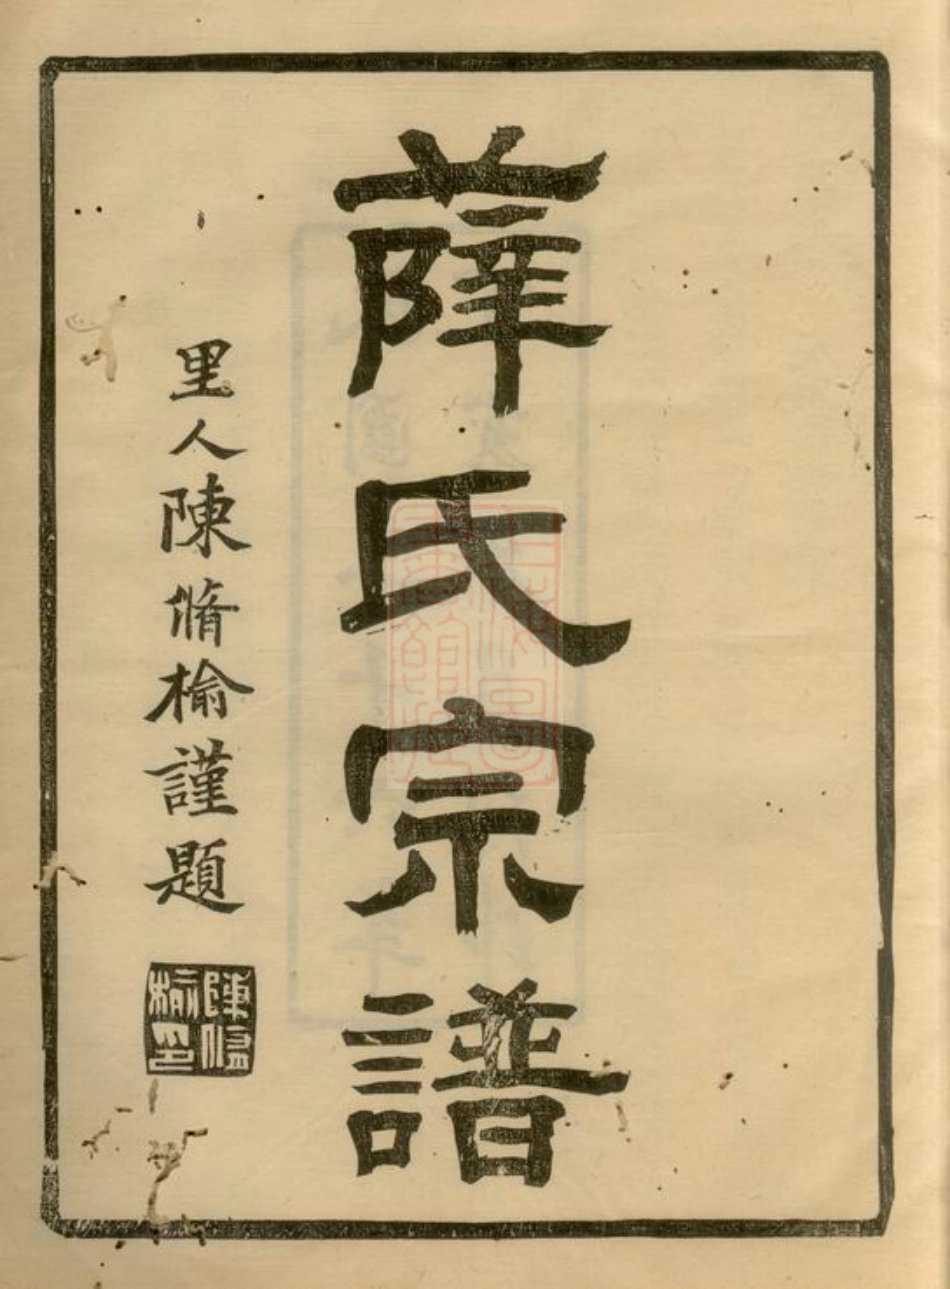 薛氏宗譜
里人陳脩榆謹題
陳脩榆印